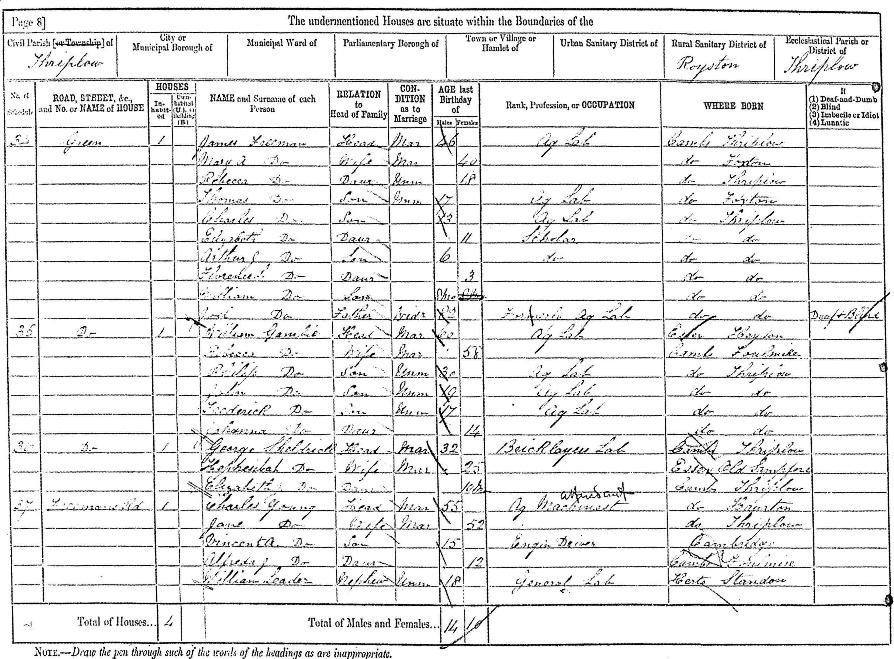 Page 8] The undermentioned Houses are situate within the Boundaries of the
Civil Parish [or Township] of City or Municipal Borough of Municipal Ward of Parliamentary Borough of Town or Village or Hamlet of Urban Sanitary District of Rural Sanitary District of Ecclesiastical Parish or District of
Thriplow Royston Thriplow
No. of Schedule ROAD, STREET, &c., and No. or NAME of HOUSE HOUSES Inhabited Uninhabited (U.), or Building (B.) NAME and Surname of each Person RELATION to Head of Family CONDITION as to Marriage AGE last Birthday of Males Females Rank, Profession, or OCCUPATION WHERE BORN If (1) Deaf-and-Dumb (2) Blind (3) Imbecile or Idiot (4) Lunatic
34 Green 1 James Freeman Head Mar 46 Ag Lab Cambs Thriplow
Mary A Do Wife Mar 40 do Foxton
Rebecca Do Daur Unm 18 do Thriplow
Thomas Do Son Unm 17 Ag Lab do Foxton
Charles Do Son 13 Ag Lab do Thriplow
Do Daur 11 Scholar do do
Arthur J Do Son 6 do do do
Florence Do Daur 3 do do
William Do Son do do
Do Father Widr Formerly Ag Lab do do Deaf & Blind
35 Do 1 William Gamble Head Mar 60 Ag Lab Essex
Rebecca Do Wife Mar 58 Cambs Foulmire
Philip Do Son Unm 30 Ag Lab do Thriplow
John Do Son Unm 19 Ag Lab do do
Frederick Do Son Unm 17 Ag Lab do do
Do Daur 14 do do
36 Do 1 George Sheldrick Head Mar 32 Bricklayers Lab Cambs Thriplow
Do Wife Mar 25 Essex Old
Elizabeth Do Daur Camb Thriplow
37 Freemans Rd 1 Charles Young Head Mar 55 Ag Machinest attendant do
Jane Do Wife Mar 52 do Thriplow
Vincent A. Do Son 15 Engin Driver Cambridge
Do Daur 12 Cambs
William Leader Nephew Unm 18 General Lab Herts Standon
Total of Houses... 4 Total of Males and Females... 14 10
NOTE.—Draw the pen through such of the words of the headings as are inappropriate.